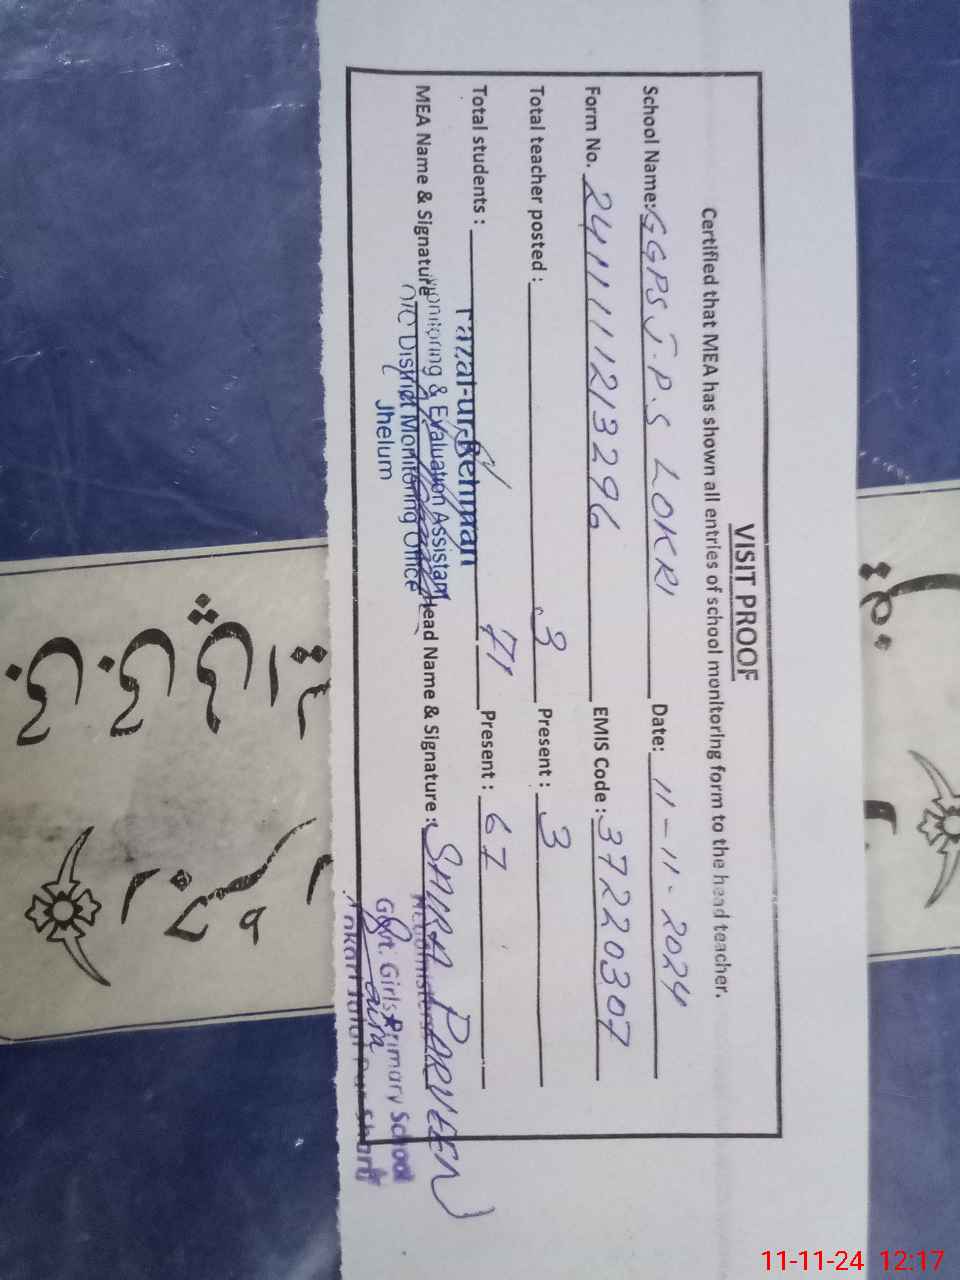 VISIT PROOF
Certified that MEA has shown all entries of school monitoring form to the head teacher.
School Name: GGPS J.P.S LOKRI Date: 11-11-2024
Form No. 241111213296 EMIS Code: 37220307
Total teacher posted: 3 Present: 3
Total students: 71 Present: 67
MEA Name & Signature Head Name & Signature: SAIRA PARVEEN
Fazal-ur-Rehman
Monitoring & Evaluation Assistant
O/O District Monitoring Office
Jhelum
Headmistress
Govt. Girls Primary School
11-11-24 12:17